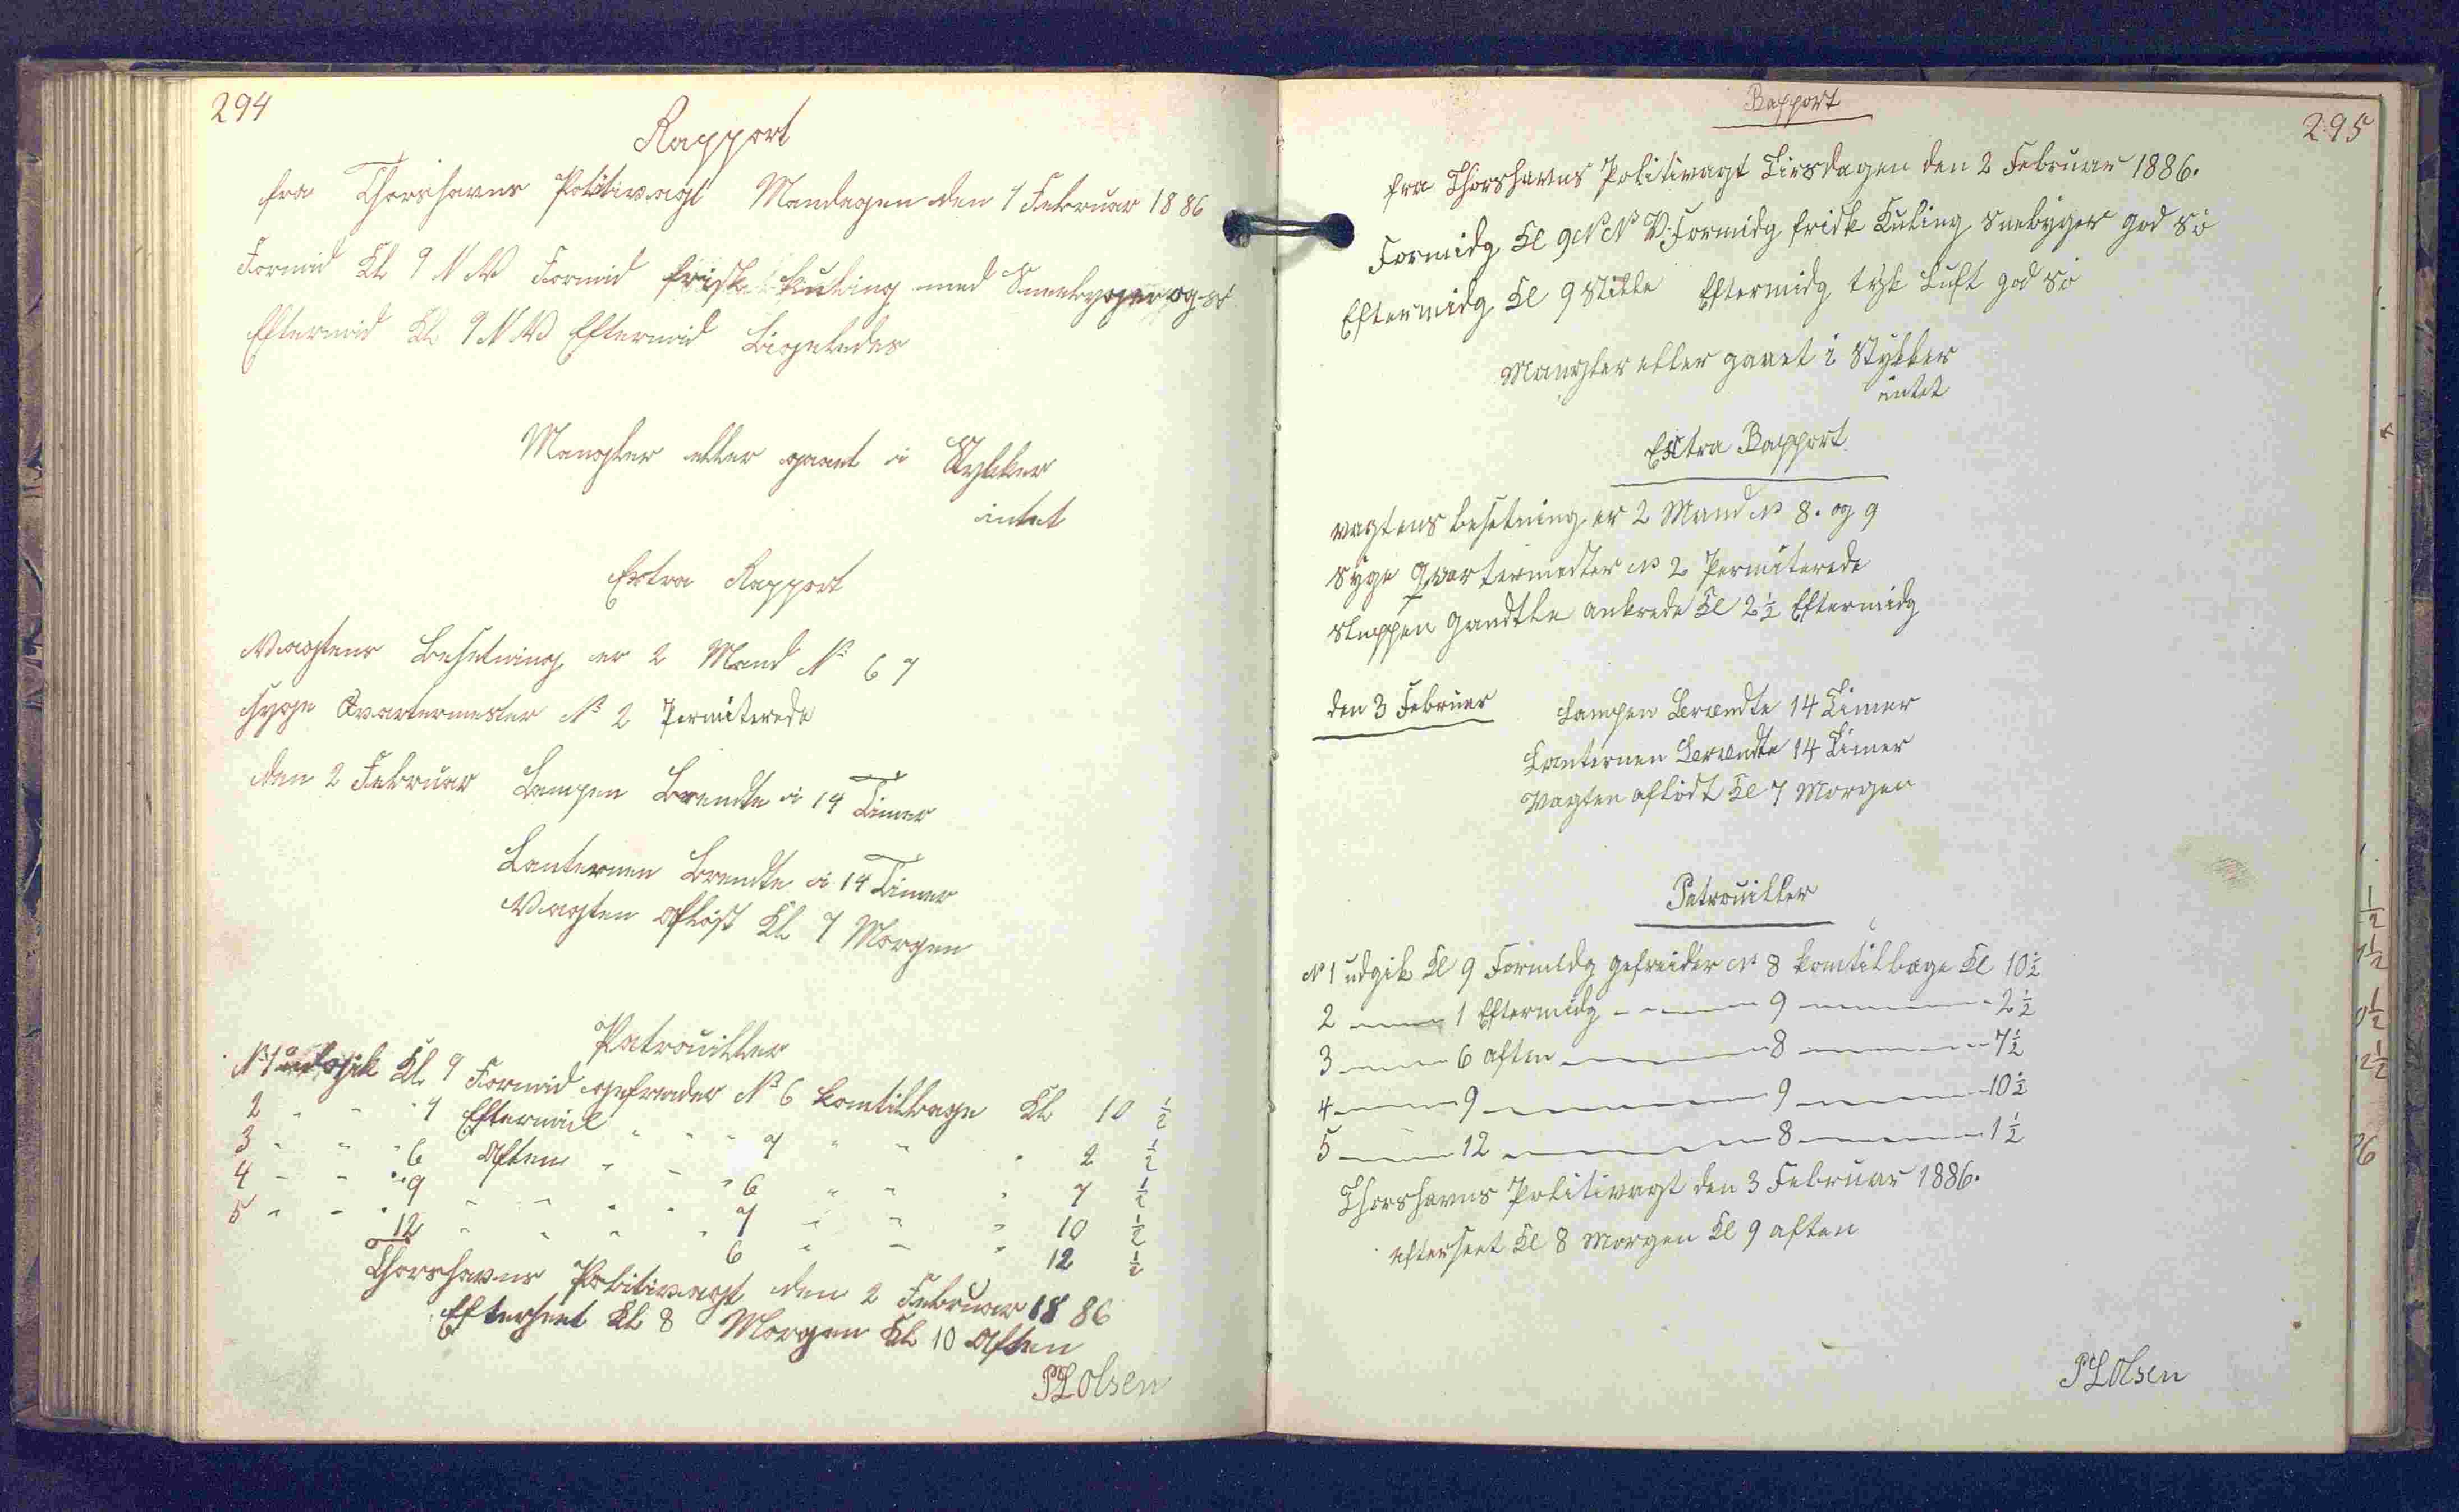 294
Rapport
fra Thorshavns Politivagt Mandagen den 1 Februar 1886
Formid Kl 9 N.V Formid frisk kuling med Sneebyger og sö
Eftermid Kl 9 N.V Eftermid Ligeledes
Mangler eller gaaet i Stykker
intet
Extra Rapport
Vagtens Besetning er 2 Mand No 6 7
syge Qvartermester No 2 Permiterede
den 2 Februar Lampen Brendte i 14 Timer
Lanternen Brendte i 14 Timer
Vagten Aflöst Kl 7 Morgen
Patrouiller
No 1 udgik Kl 9 Formid gefreider No 6 komtilbage Kl 10 ½
2 " " 1 Eftermid " " " 7 " " " 2 ½
3 " " 6 Aften " " " 6 " " " 7 ½
4 " " 9 " " " " 7 " " " 10 ½
5 " " 12 " " " " 6 " " " 12 ½
Thorshavns Politivagt den 2 Februar 1886
Efterseet Kl 8 Morgen Kl 10 Aften
PLOlsen
295
Rapport
fra Thorshavns Politivagt Tirsdagen den 2 Februar 1886.
Formidg Kl 9 N N V. Formidg frisk Kuling Sneebyger god Sö
Eftermidg Kl 9 Stille Eftermidg tyk Luft god Sö
Mangler eller gaaet i Stykker
intet
Extra Rapport
vagtens besetning er 2 Mand No 8. og 9
Syge Qvartermester No 2 Permiterede
Sluppen ankrede Kl 2½ Eftermidg
den 3 Februar Lampen Brændte 14 Timer
Lanternen Brændte 14 Timer
Vagten aflöst Kl 7 Morgen
Patrouiller
No 1 udgik Kl 9 Formidg gefreider No 8 komtilbage Kl 10½
2 — 1 Eftermidg — 9 — 2½
3 — 6 aften — 8 — 7½
4 — 9 — 9 — 10½
5 — 12 — 8 — 1½
Thorshavns Politivagt den 3 Februar 1886.
efterseet Kl 8 Morgen Kl 9 aften
PLOlsen